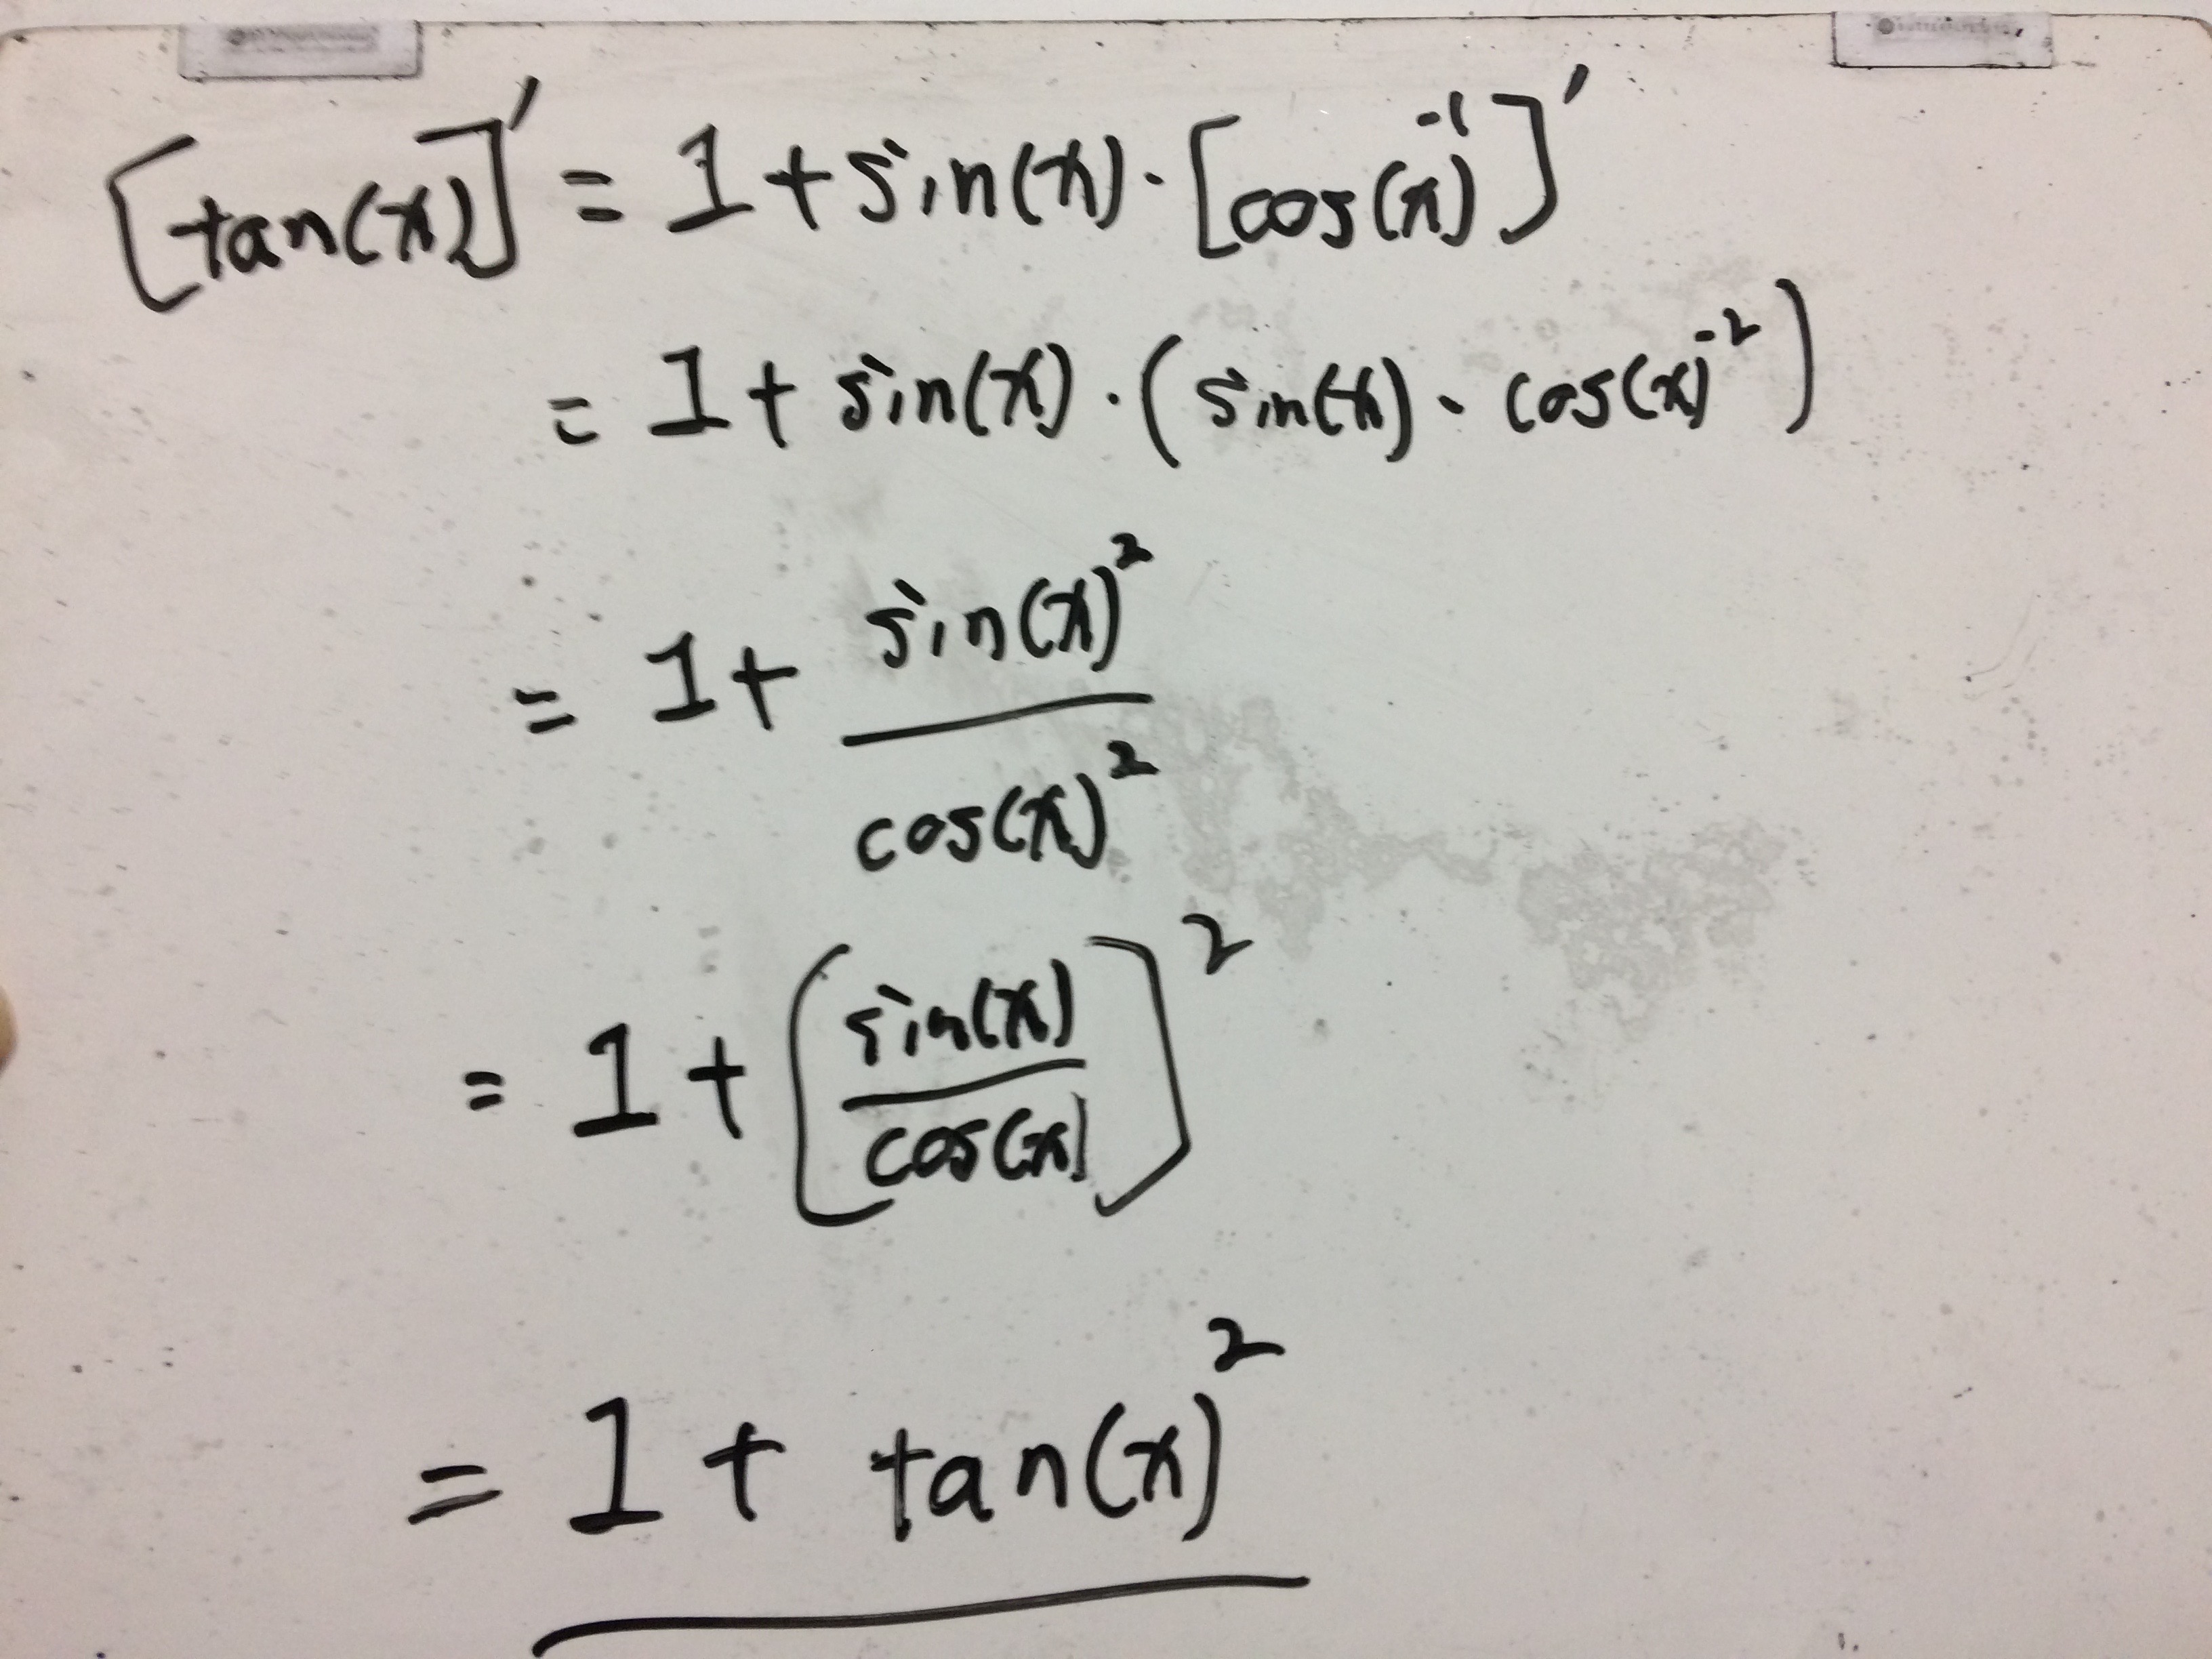 [tan(x)]' = 1 + sin(x) · [cos(x)⁻¹]'
= 1 + sin(x) · (sin(x) · cos(x)⁻²)
= 1 + sin(x)² / cos(x)²
= 1 + (sin(x) / cos(x))²
= 1 + tan(x)²